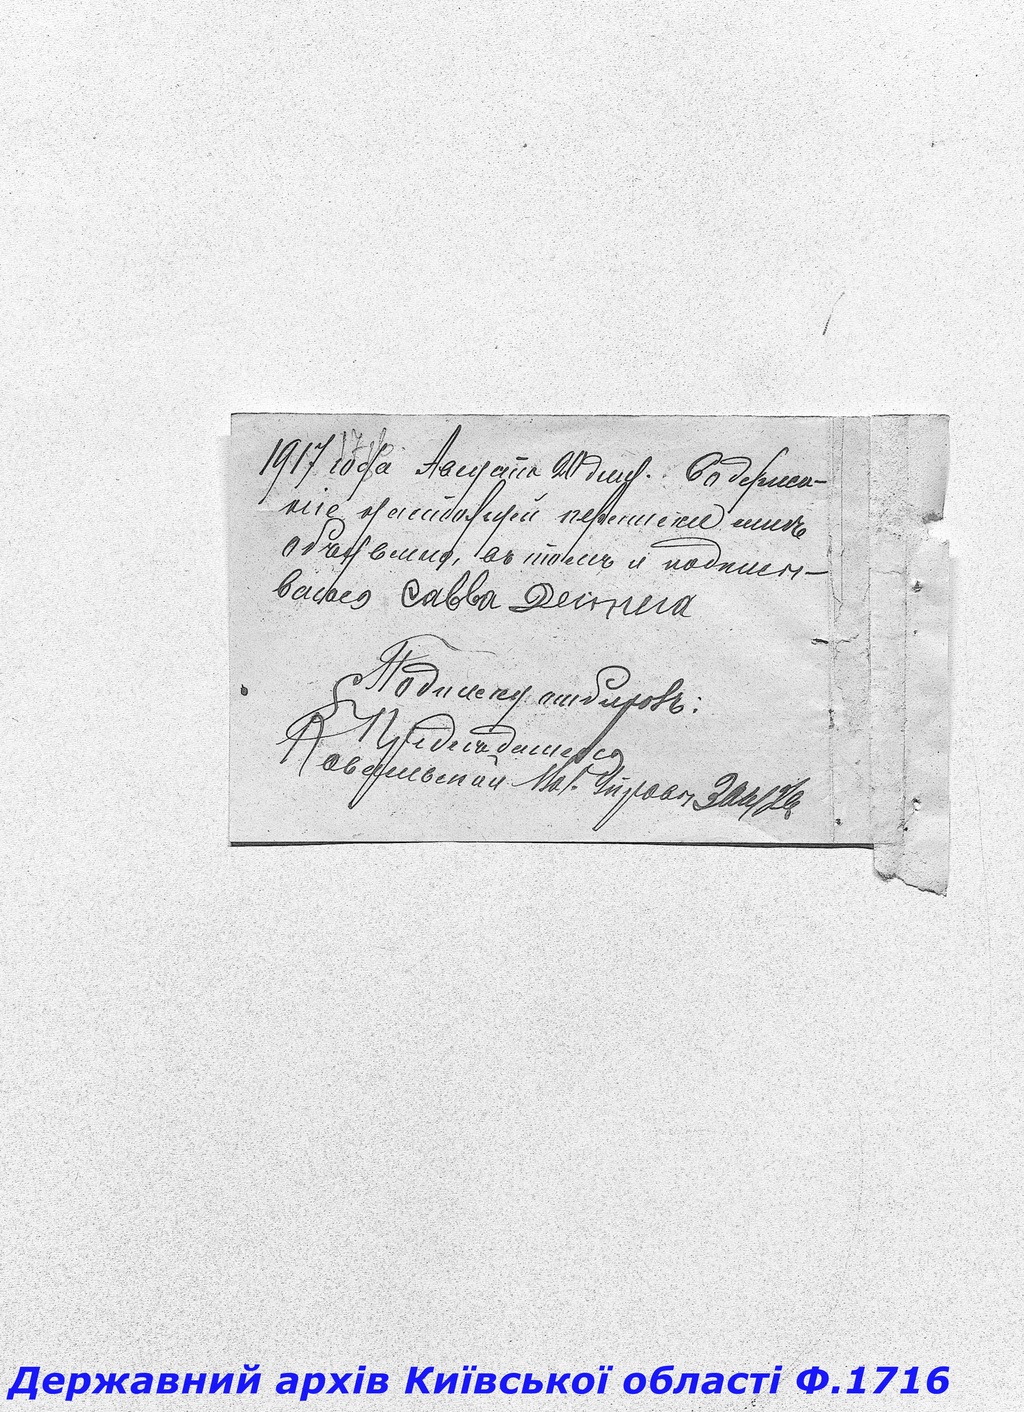 1917 года Августа 20 дня. Содержа-
ніе настоящей переписки мнѣ
объявлено, въ томъ и подписы-
ваюсь Савва
Подписку отбиралъ:
Предсѣдатель
Ковальской
Державний архів Київської області Ф.1716